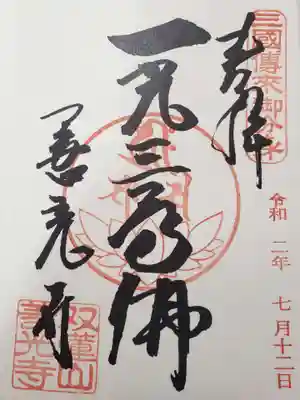 三國傳來御分身
奉拝
令和 二年 七月十二日
一光三尊佛
善光寺
双葉山
善光寺